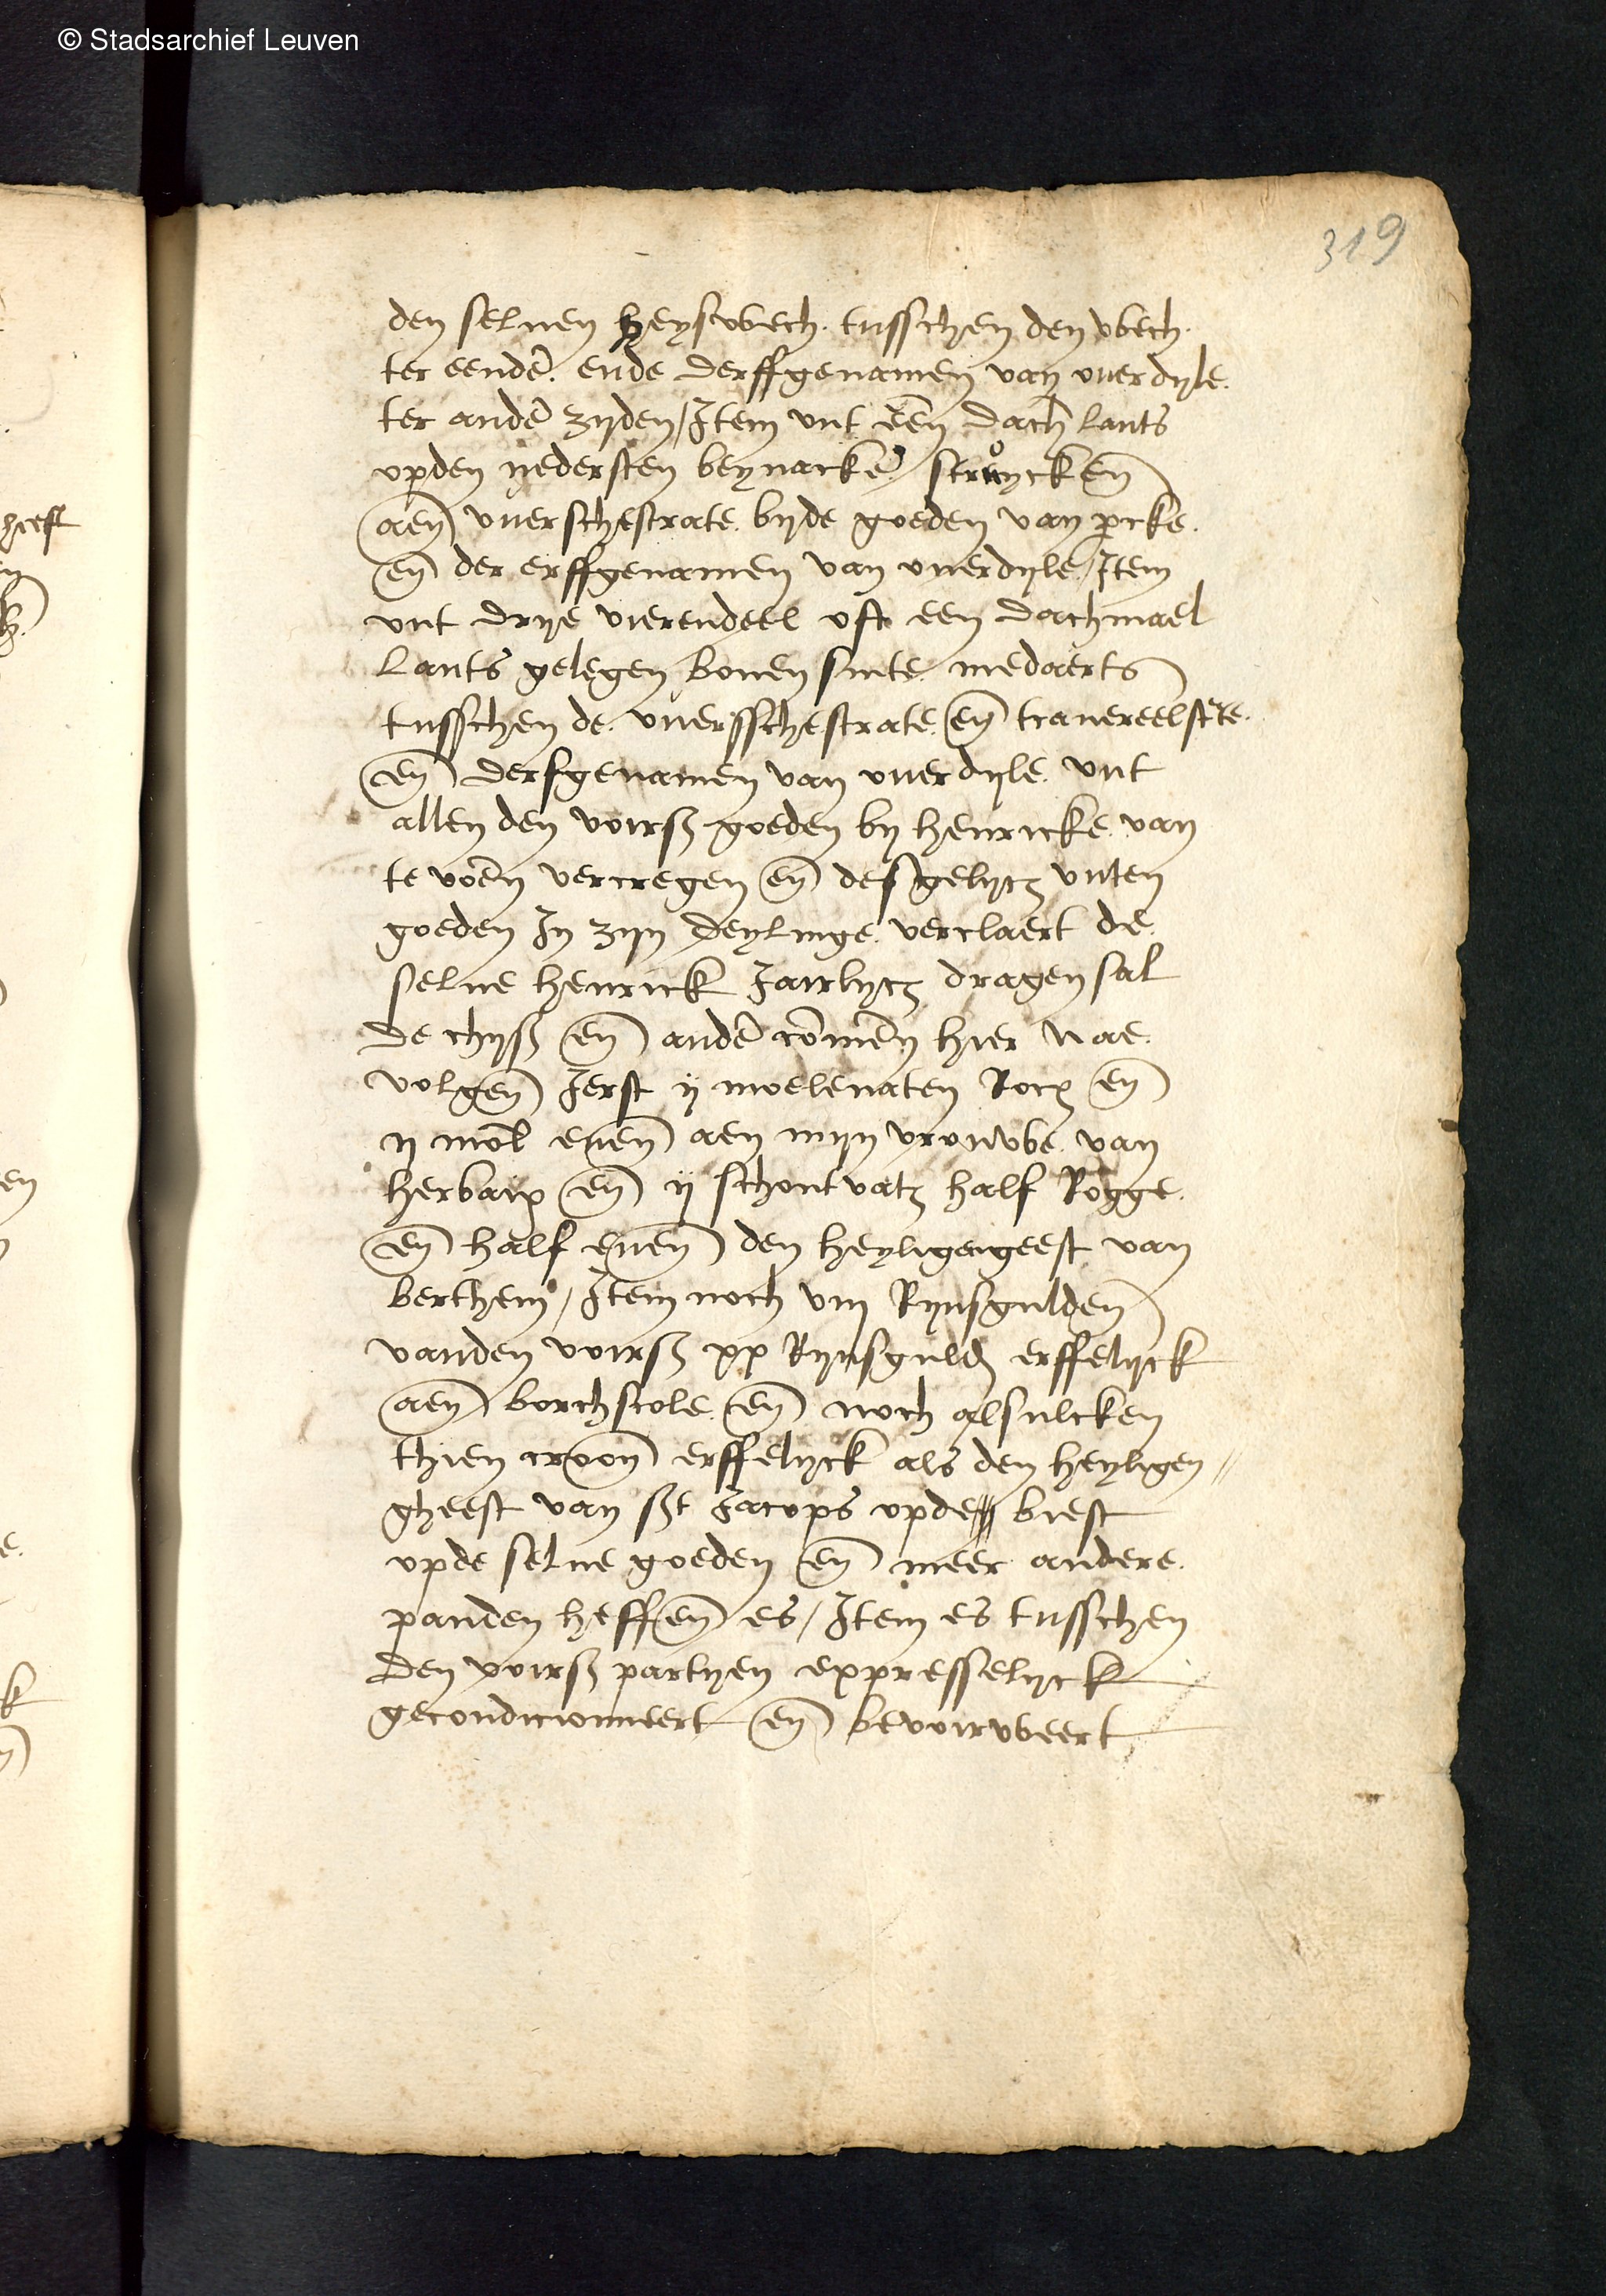 © Stadsarchief Leuven
319
den seluen heyswech tusschen den wech
ter eendē ende derffgenamen van uuerdyle
ter andē zijden / Item vut een dach lants
upden nedersten beynacker struycken
aen uuerschestrate bijde goeden van percke
en̄ der erffgenamen van uuerdyle / Item
vut drye vierendeel oft een dachmael
lants gelegen bouen sinte medaerts
tusschen de uuersschestrate en̄ trauereelstrte
en̄ derfgenamen van uuerdyle vut
allen den voirs goeden by henricke van
te voen vercregen en̄ desgelycx vuten
goeden In zijn deylinge verclaert de
selue henrick Jairlycx dragen sal
de chys en̄ andē comēn hier nae
volgen̄ Jerst ij moelenaten Rocx en̄
ij mol euen̄ aen mijn vrouwe van
herbaix en̄ ij schontvatz half Rogge
en̄ half euen̄ den heyligengeest van
berthem / Item noch viij Rynsgulden̄
vanden voirs xx Rynsguld erffelyck
aen̄ borchscole en̄ noch alsulcken
thien croon̄ erffelyck als den heyligen
gheest van sint Jacops upde biest
upde selue goeden en̄ meer andere
panden heffen̄ es / Item es tusschen
den voirs partyen expresselyck
gecondicionneert en̄ bevoirweert